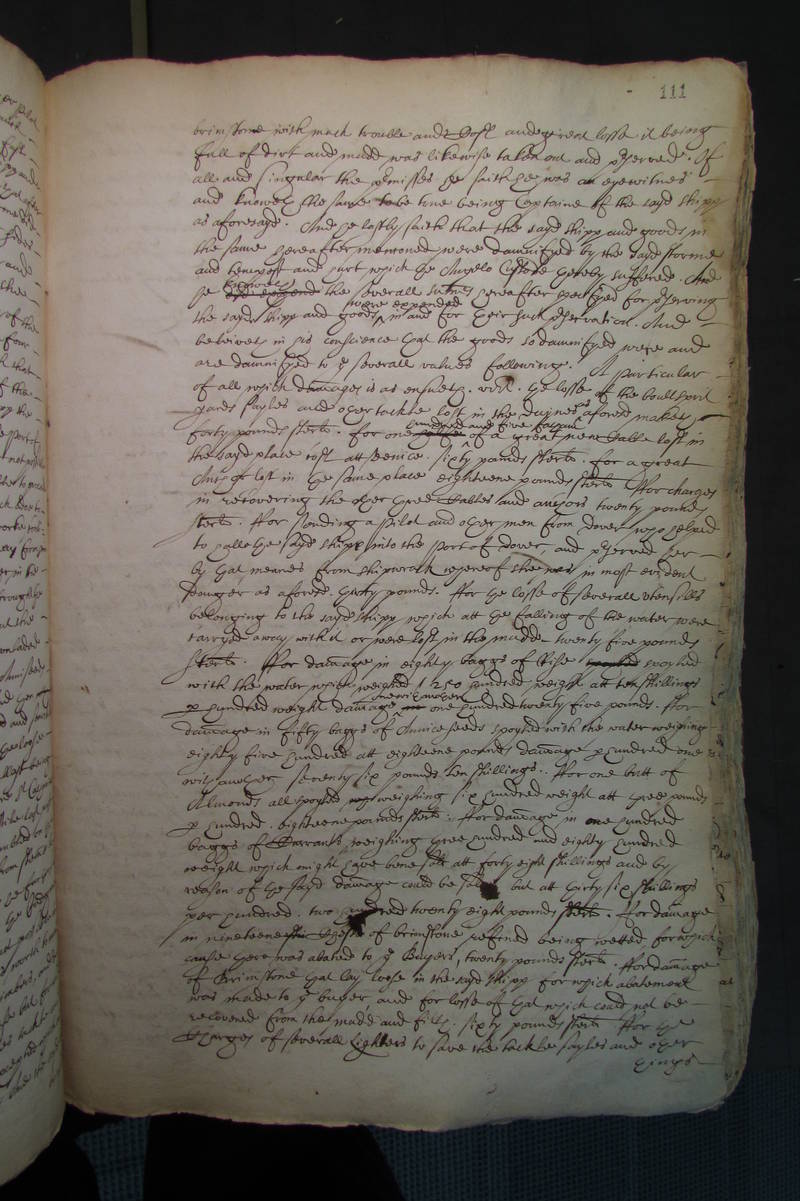 111
brimstone with much trouble and Cost and great losse it being
full of dirt and mudd was likewise taken out and preserved. Of
all and singular the premisses he saith hee was an eyewitnes
and knoweth the same to be true being Captaine of the sayd shipp
as aforesayd. And he lastly saith that the sayd shipp and goods in
the same hereafter mentioned were damnifyed by the sayd storme
and tempest and hurt which the Angelo Custode thereby suffered. And
he knoweth the severall summes hereafter specifyed for preserving
the sayd shipp and goods were expended in and for their such preservation. And
beleiveth in his conscience that the goods so damnifyed were and
are damnifyed to ye severall values following. A particular
of all which damages is as ensueth. vizt. the losse of the boultsprit
yards sayles and other tackle lost in the Duynes as aforesd makes
forty pounds sterls. for one hundred and five of a great new Cable lost in
the sayd place cost att Venice sixty pounds sterls. for a great
Anchor lost in the same place eighteene pounds sterls ffor charges
in recovering the other three Cables and anchors twenty pounds
sterls. ffor sending a Pilot and other men from Dover who helped
to gett the sayd shipp into the Port of Dover, and preserved her
by that meanes from shipwrack whereof shee was in most evident
danger as aforesd. thirty pounds. ffor the losse of severall Utensills
belonging to the sayd shipp which att the falling of the water were
carryed away with it or were lost in the mudde twenty five pounds
sterls. ffor damage in eighty baggs of Rise spoyled
with the water which weighed 1250 hundred weight att ten shillings
p hundred weight damage one hundred twenty five pounds. ffor
damage in fifty baggs of Anniceseeds spoyled with the water weighing
eighty five hundred att eighteene pounds damage p hundred one
with another seventy six pounds ten shillings. ffor one butt of
Almonds all spoyled weighing six hundred weight att three pounds
p hundred. eighteene pounds sterls. ffor damage in one hundred
baggs of Currants weighing three hundred and eighty hundred
weight which might have bene sold att forty eight shillings and by
reason of the sayd damage could be sold but att thirty six shillings
per hundred. two hundred twenty eight pounds sterls. ffor damage
in nineteene Chests of brimstone refined being wetted for which
cause there was abated to ye Buyers, twenty pounds sterls. ffor damage
of Brimstone that lay loose in the sayd shipp for which abatement
was made to ye buyer and for losse of that which could not be
recovered from the mudd and filth, sixty pounds sterls ffor the
Charges of severall Lighters to save the tackle sayles and other
things